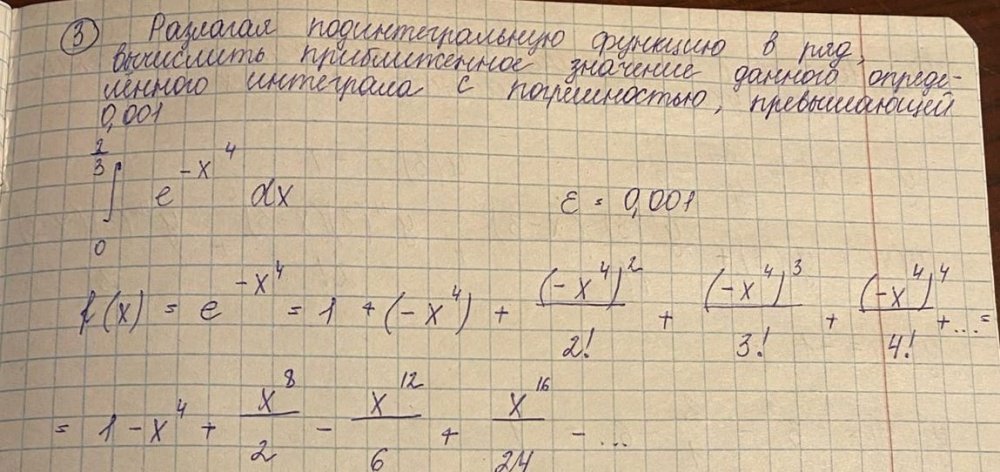 ③ Разлагая подинтегральную функцию в ряд,
вычислить приближенное значение данного опреде-
лённого интеграла с погрешностью, превышающей
0,001
∫₀^(2/3) e^(-x^4) dx ε = 0,001
f(x) = e^(-x^4) = 1 + (-x^4) + (-x^4)^2/2! + (-x^4)^3/3! + (-x^4)^4/4! + ... =
= 1 - x^4 + x^8/2 - x^12/6 + x^16/24 - ...